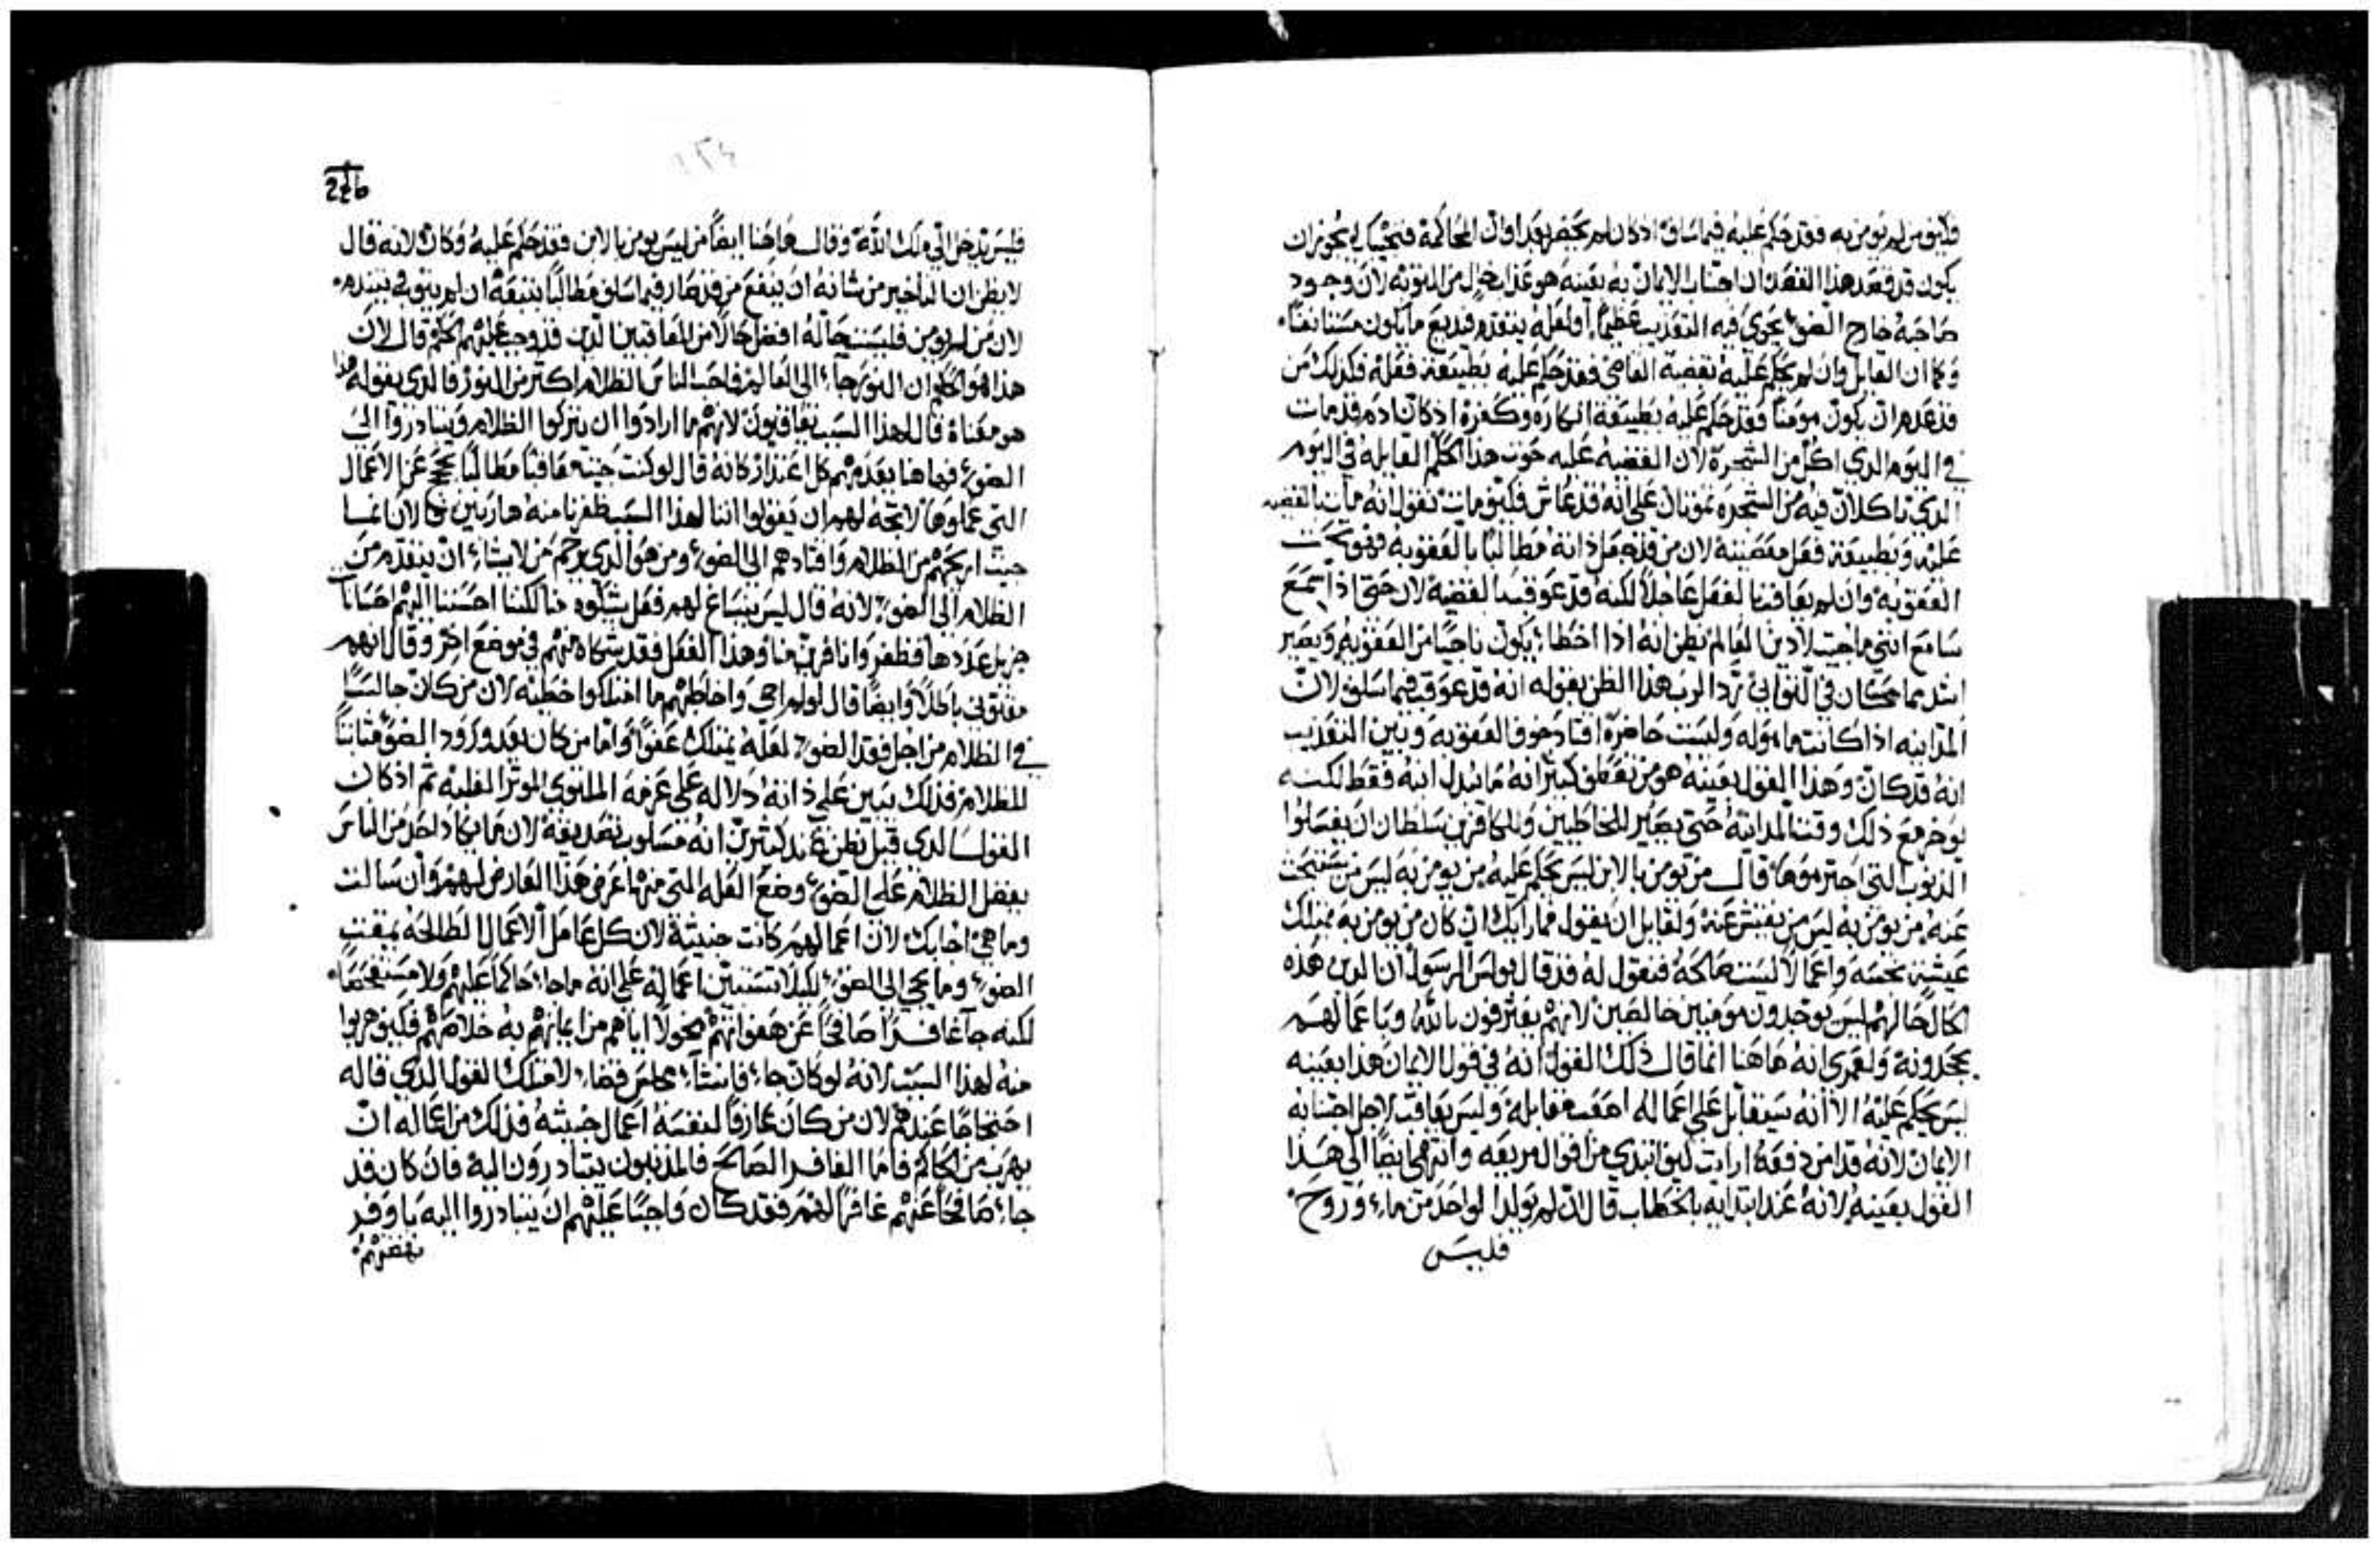 فكيف من لم يومن به فقد حكم عليه فيما سلف اذ كان لم يحضر بعد اوان المحاكمة فنجيبك يجوز ان
يكون قد قصد هذا القصد ان اجتناب الايمان به بعينه هو عذاب خال من التوبه لان وجود
صاحبه خارج الضوء يحوي فيه التعذيب عظيما او لعله يتقدم فديع ما يكون مستانفا
وكما ان القاتل وان لم يحكم عليه بقضية القاضي فقد حكم عليه بطبيعة فعله فكذلك من
قد عدم ان يكون مومنا فقد حكم عليه بطبيعة انكاره وكفره اذ كان ادم قد مات
في اليوم الذي اكل من الشجرة لان القضيه عليه حوت هذا الحكم القايله في اليوم
الذي تاكلان فيه من الشجره تموتان على انه قد عاش فكيف مات نقول انه مات بالقضيه
عليه وبطبيعة فعل معصيته لان من قد جعل ذاته مطالبا بالعقوبه فهو تحت
العقوبه وان لم يعاقب بالفعل عاجلا لكنه قد عوقب بالقضيه لان حتى اذا سمع
سامع انني ما جيت لادين العالم يظن انه اذا اخطا يكون ناجيا من العقوبه ويصير
اشد مما كان في التواني رد الرب هذا الظن بقوله انه قد عوقب فيما سلف لان
المداينه اذا كانت ماموله وليست حاضرة اقتاد خوف العقوبه وبين التعذيب
انه قد كان وهذا القول بعينه هو من تعطف كثير انه ما بذل ابنه فقط لكنه
يوخر مع ذلك وقت المداينة حتى يصير للخاطيين وللكافرين سلطان ان يغسلوا
الذنوب التي اجترموها قال من يومن بالابن ليس يحكم عليه من يومن به ليس من يستبحث
عنه من يومن به ليس من يفتش عنه ولقايل ان يقول فما رايك ان كان من يومن به يمتلك
عيشة نجسه واعمالا ليست صالحة فنقول له قد قال بولس الرسول ان الذين هذه
الحال حالهم ليس يوجدون مومنين خالصين لانهم يعترفون بالله وباعمالهم
يجحدونه ولعمري انه هاهنا انما قال ذلك القول انه في قول الايمان هذا بعينه
ليس يحكم عليه الا انه سيقابل على اعماله اصعب مقابلة وليس يعاقب لاجل اجتنابه
الايمان لانه قد امن دفعة ارايت كيف ابتدى من اقوال مريعه وانتهى ايضا الى هذا
القول بعينه لانه عند ابتدايه بالخطاب قال ان لم يولد الواحد من ماء وروح
فليس
فليس يدخل الى ملك الله وقال هاهنا ايضا من ليس يومن بالابن فقد حكم عليه وكان لانه قال
لا يظن ان التاخير من شانه ان ينفع من قد صار فيما سلف مطالبا بتبعة ان لم يتوب في يتندم
لان من لم يومن فليست حاله افضل حالا من المعاقبين الذين قد وجب عليهم الحكم قال لان
هذا هو الحكم ان النور جاء الى العالم فاحب الناس الظلام اكثر من النور فالذي يقوله هذا
هو معناه قال لهذا السبب يعاقبون لانهم ما ارادوا ان يتركوا الظلام ويتبادروا الى
الضوء فهاهنا يعدمهم كل اعتذار كانه قال لو كنت جيت معاقبا مطالبا بحجج عن الاعمال
التي عملوها لاتجه لهم ان يقولوا اننا لهذا السبب ظفرنا منه هاربين فالان انما
جيت اريحهم من الظلام واقتادهم الى الضوء ومن هو الذي يرحم من لا يشاء ان يتقدم من
الظلام الى الضوء لانه قال ليس ينساغ لهم فعل يشكوه منا لكننا احسنا اليهم احسانات
جزيل عددها فطفروا نافرين منا وهذا الفعل فقد شكاه منهم في موضع اخر وقال انهم
مقتوني باطلا وايضا قال لو لم اجي واخاطبهم ما امتلكوا خطيه لان من كان جالسا
في الظلام من اجل فقد الضوء لعله يمتلك عفوا واما من كان بعد ورود الضوء ثابتا
للظلام فذلك يبين على ذاته دلاله على عزمه الملتوي الموثر الغلبه ثم اذ كان
القول الذي قيل يظن عند كثيرين انه مسلوب تصديقه لان ما يكاد احد من الناس
يفضل الظلام على الضوء وضع العله التي منها عرض هذا العارض لهم وان سالت
وما هي اجابك لان اعمالهم كانت خبيثة لان كل عامل الاعمال الطالحة يمقت
الضوء وما يجي الى الضوء ليلا تستبين اعماله على انه ما جاء حاكما عليهم ولا مستفحصا
لكنه جا غافرا صافحا عن هفواتهم مخولا اياهم من ايمانهم به خلاصهم فكيف هربوا
منه لهذا السبب لانه لو كان جاء فانشاء مجلس قضاء لامتلك القول الذي قاله
احتجاجا عندهم لان من كان عارفا لنفسه اعمال خبيثه فذلك من اعماله ان
يهرب من الحاكم فاما الغافر الصافح فالمذنبون يتبادرون اليه فان كان قد
جاء صافحا عنهم غافرا لهم فقد كان واجبا عليهم ان يتبادروا اليه باوفر